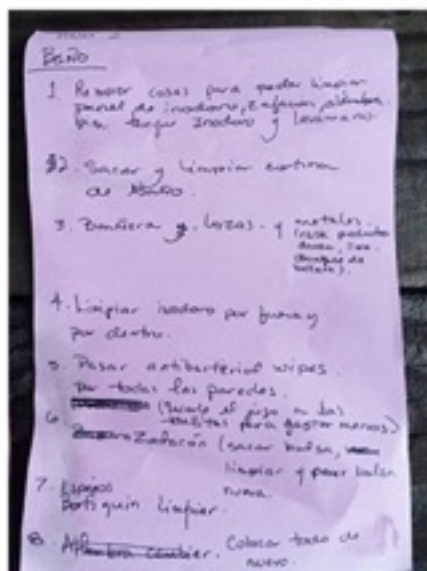 Baño
1 Remover cosas para poder limpiar
de inodoro, Zafacon, alfombra
Inodoro y lavamanos
2. Sacar y limpiar cortina
de Baño.
3. Bañera y lozas y metales.
4. Limpiar inodoro por fuera y
por dentro.
5. Pasar antibacterial wipes.
Por todas las paredes.
el piso a las
para gastar menos)
6 Zafacón (sacar bolsa,
limpiar y poner bolsa
nueva.
7. Espejos
Botiquin limpiar.
8. cambiar. Colocar todo de
nuevo.